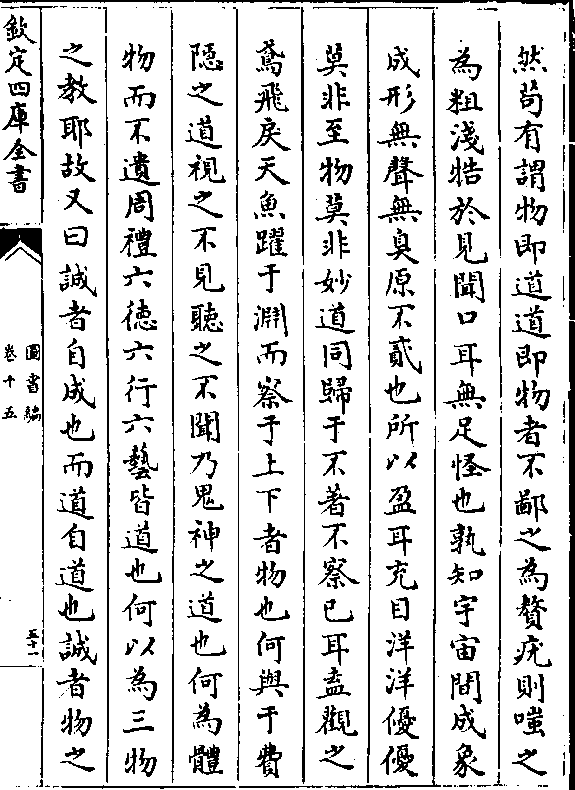 然苟有謂物即道道即物者不鄙之為贅疣則嗤之
為粗淺牿於見聞口耳無足怪也孰知宇宙間成象
成形無聲無臭原不貳也所以盈耳充目洋洋優優
莫非至物莫非妙道同歸于不著不察已耳盍觀之
鳶飛戾天魚躍于淵而察于上下者物也何與于費
隠之道視之不見聽之不聞乃鬼神之道也何為體
物而不遺周禮六徳六行六藝皆道也何以為三物
之教耶故又曰誠者自成也而道自道也誠者物之
欽定四庫全書
圖書編
卷十五
五十一